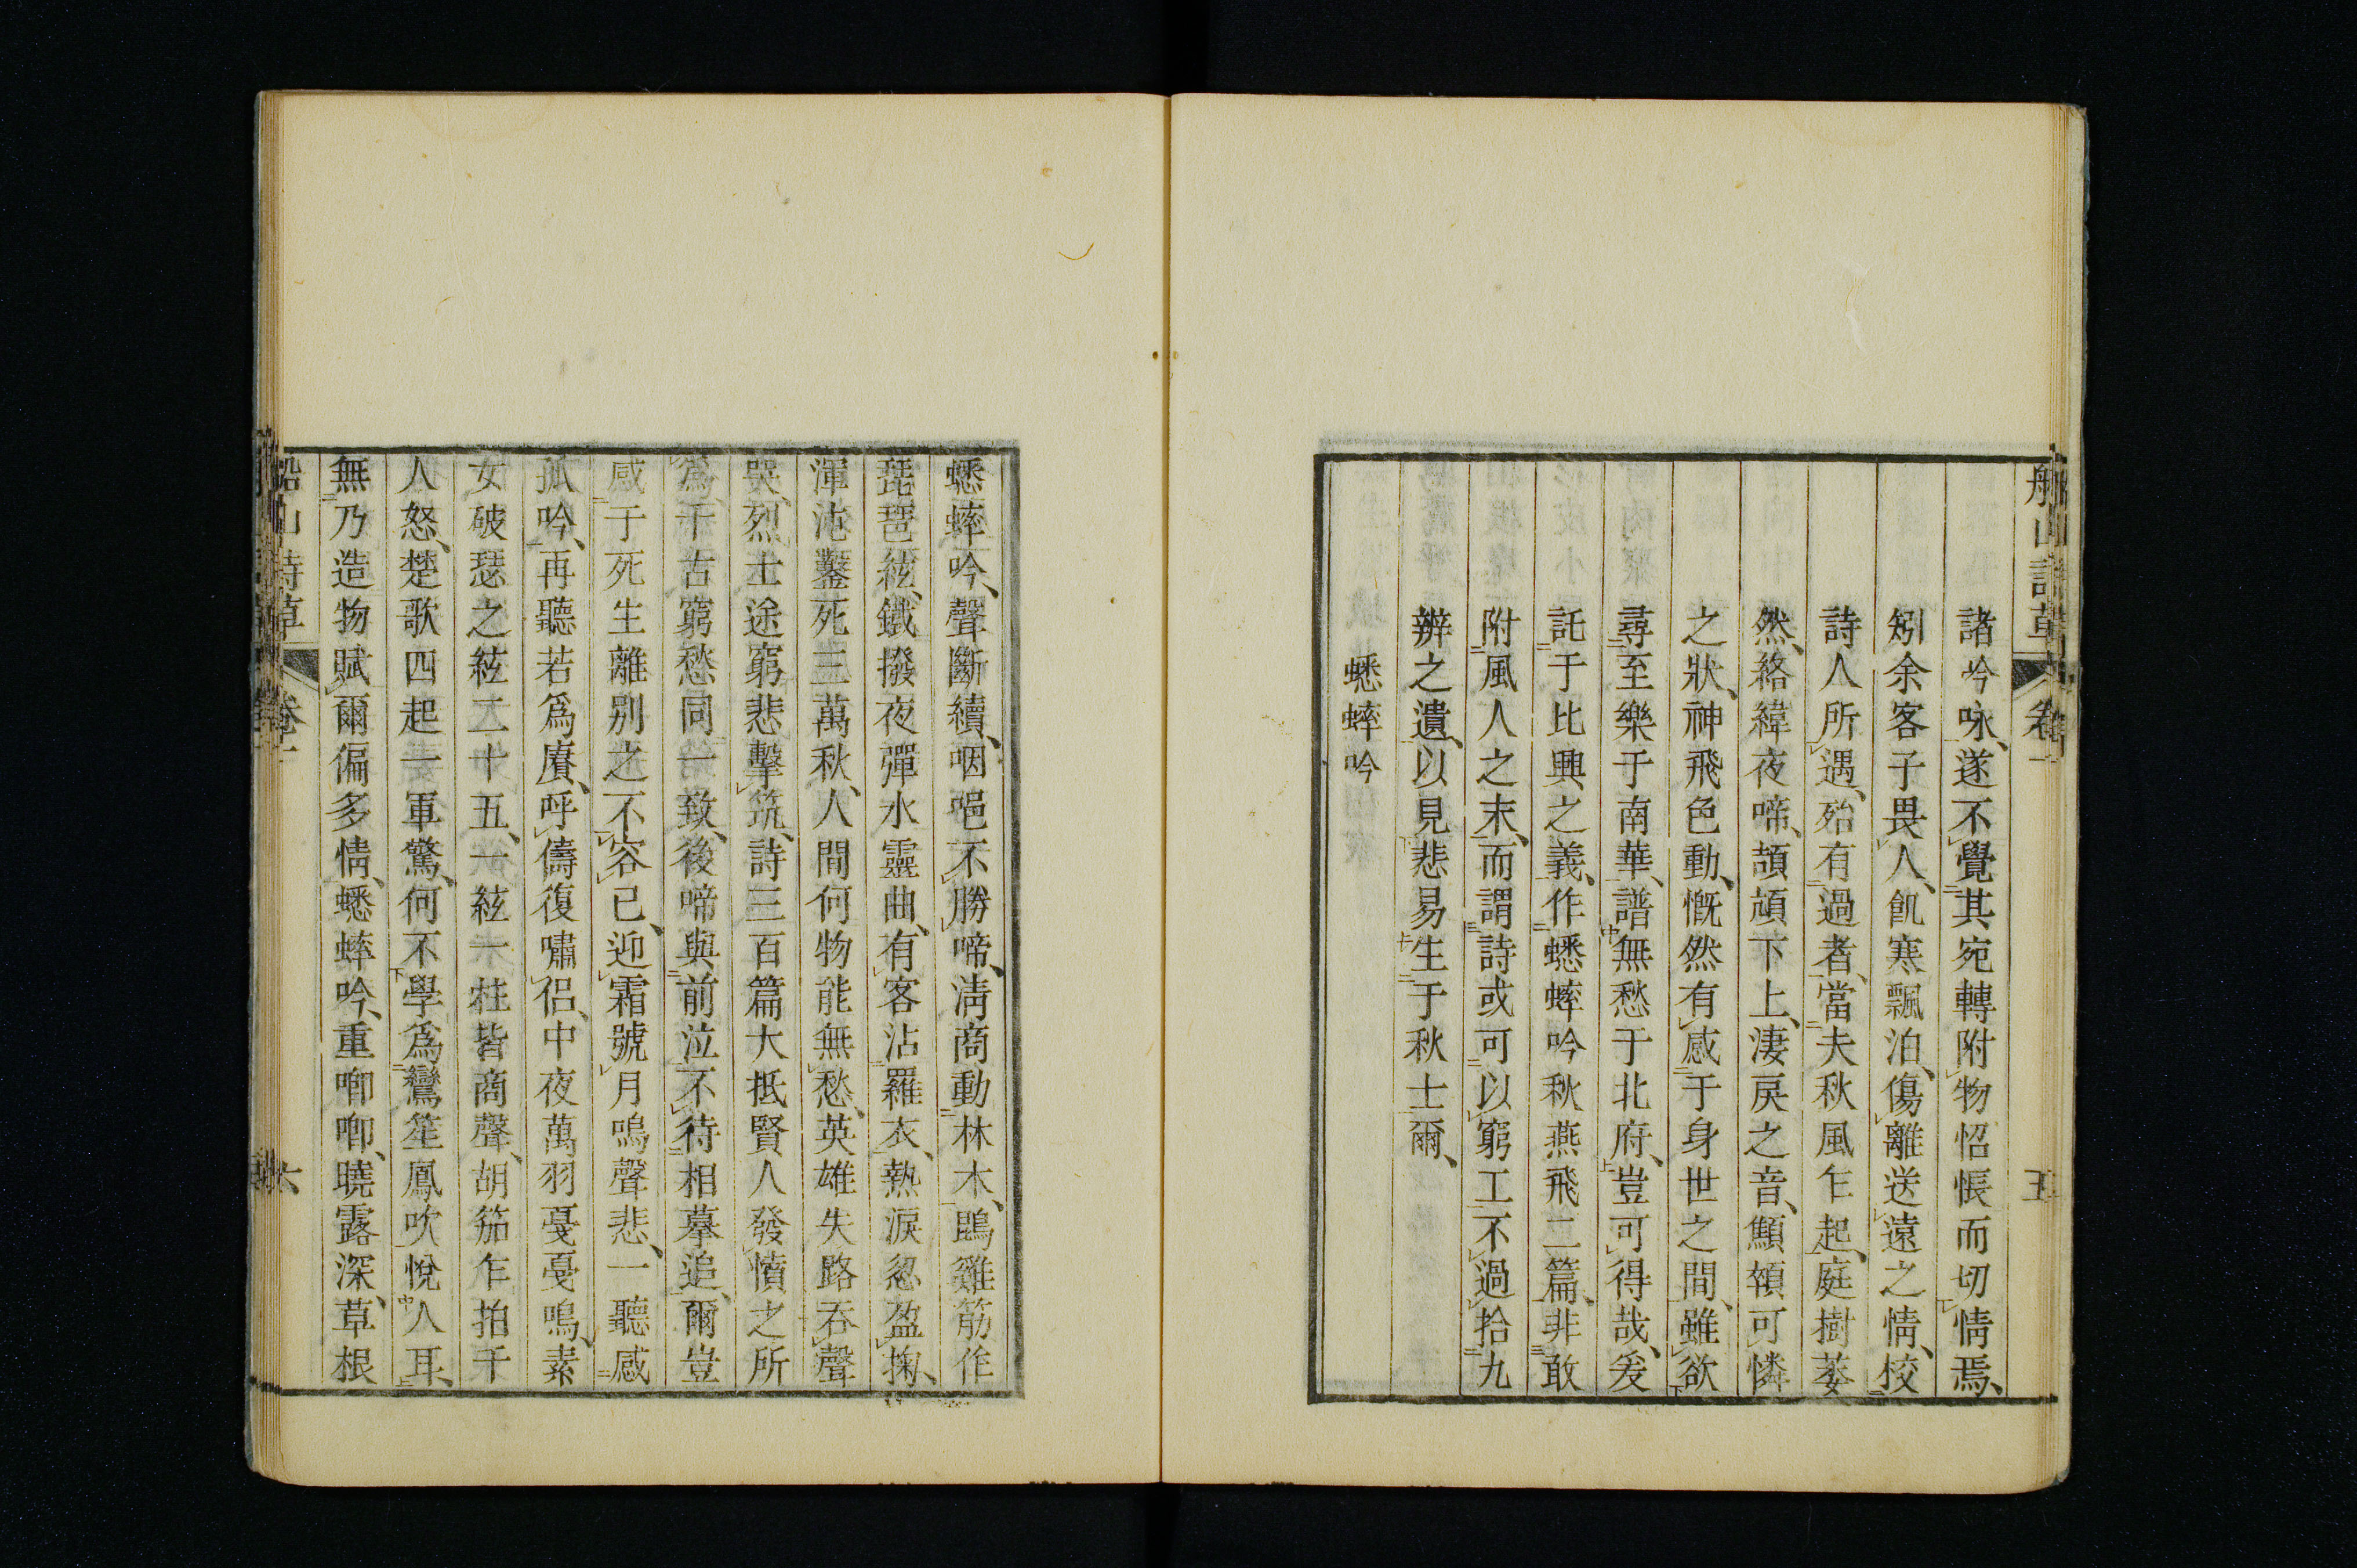 船山詩草 卷一 五
諸吟咏、遂不覺其宛轉附物怊悵而切情焉、
矧余客子畏人、飢寒飄泊、傷離送遠之情、校
詩人所遇、殆有過者、當夫秋風乍起、庭樹萎
然、絡緯夜啼、頡頏下上、淒戾之音、顦顇可憐
之狀、神飛色動、慨然有感于身世之間、雖欲
尋至樂于南華、譜無愁于北府、豈可得哉、爰
託于比興之義、作蟋蟀吟秋燕飛二篇、非敢
附風人之末、而謂詩或可以窮工、不過拾九
辨之遺、以見悲易生于秋士爾、
蟋蟀吟
蟋蟀吟、聲斷續、咽唈不勝啼、淸商動林木、鵾雞筋作
琵琶絃、鐵撥夜彈水靈曲、有客沾羅衣、熱淚忽盈掬、
渾沌鑿死三萬秋、人間何物能無愁、英雄失路吞聲
哭、烈士途窮悲擊筑、詩三百篇大抵賢人發憤之所
爲、千古窮愁同一致、後啼與前泣、不待相摹追、爾豈
感于死生離別之不容已、迎霜號月鳴聲悲、一聽感
孤吟、再聽若爲賡、呼儔復嘯侶、中夜萬羽戛戛鳴、素
女破瑟之絃二十五、一絃一柱皆商聲、胡笳乍拍千
人怒、楚歌四起一軍驚、何不學爲鸞笙鳳吹悅人耳、
無乃造物賦爾偏多情、蟋蟀吟、重喞喞、曉露深、草根
船山詩草 卷一 六